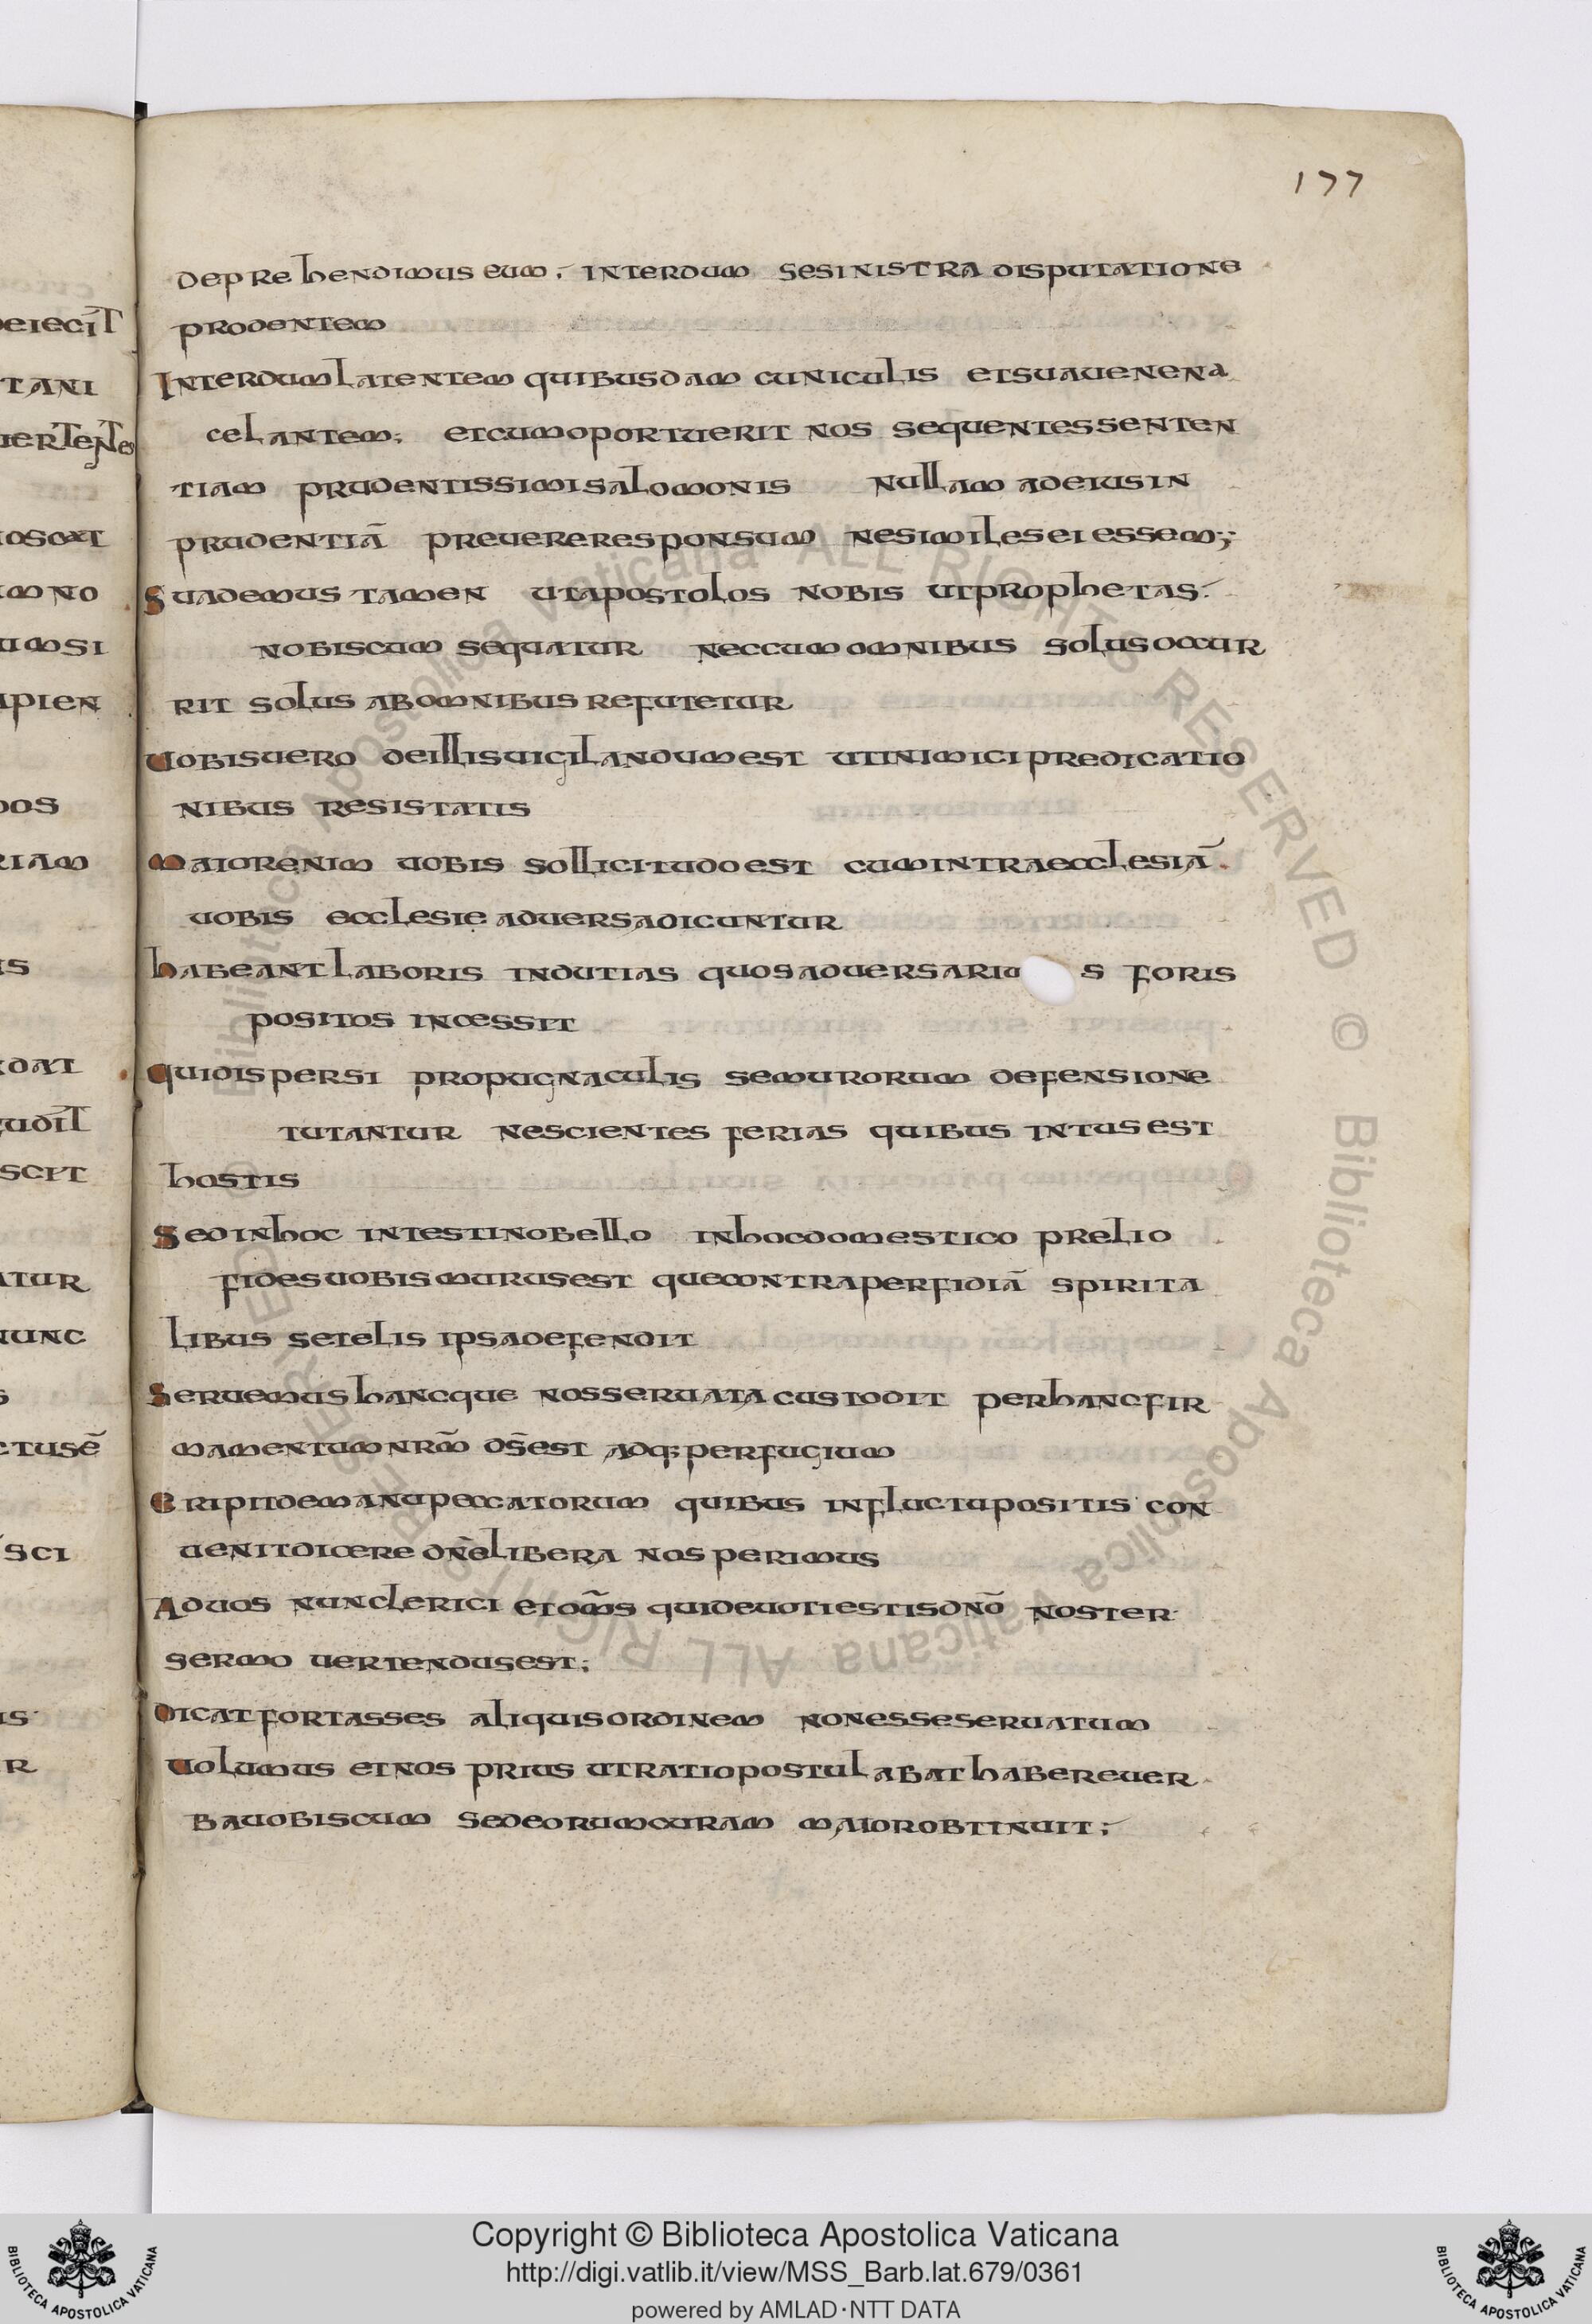 177
deprehendimus eum. interdum se sinistra disputatione
prodentem
Interdum latentem quibusdam cuniculis et sua uenena
celantem; et cum oportuerit nos sequentes senten
tiam prudentissimi salomonis nullam ad eius in
prudentiā preuere responsum ne similes ei essem;
Suademus tamen ut apostolos nobis ut prophetas.
nobiscum sequatur nec cum omnibus solus occur
rit solus ab omnibus refutetur
Uobis uero de illis uigilandum est ut inimici predicatio
nibus resistatis
Maior enim uobis sollicitudo est cum intra ecclesiā.
uobis ecclesie aduersa dicuntur
habeant laboris indutias quos aduersariu s foris
positos incessit
quidispersi propugnaculis se murorum defensione
tutantur nescientes ferias quibus intus est
hostis
Sed in hoc intestino bello in hoc domestico prelio
fides uobis murus est que contra perfidiā spirita
libus se telis ipsa defendit
Seruemus hancque nos seruata custodit per hanc fir
mamentum nr̄m d̄s est adq; perfugium
Eripit de manu peccatorum quibus in fluctu positis con
uenit dicere dn̄e libera nos perimus
Ad uos nunc clerici et om̄s qui deuoti estis dn̄o noster
sermo uertendus est;
Dicat fortasses aliquis ordinem non esse seruatum
Uolumus et nos prius ut ratio postulabat habere uer
ba uobiscum sed eorum curam maior obtinuit;
eiecīt
tani
uertent
oscat
m no
umsi
apien
dos
riam
is
dat
cudīt
scit
atur
nunc
s
ctus ē
sci
is
r
© Biblioteca Apostolica Vaticana ALL RIGHTS RESERVED © Biblioteca Apostolica Vaticana ALL RIGHTS RESERVED
Copyright © Biblioteca Apostolica Vaticana
http://digi.vatlib.it/view/MSS_Barb.lat.679/0361
powered by AMLAD·NTT DATA
BIBLIOTECA APOSTOLICA VATICANA
BIBLIOTECA APOSTOLICA VATICANA